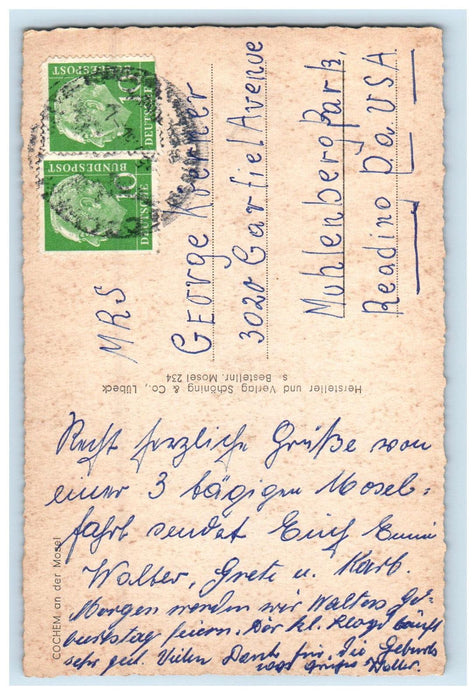 DEUTSCHE
BUNDESPOST
10
DEUTSCHE
BUNDESPOST
10
MRS
George Koerner
3020 Garfiel Avenue
Muhlenberg Park,
Reading Pa USA
Hersteller und Verlag Schöning & Co., Lübeck
s Bestellnr. Mosel 234
COCHEM an der Mosel
Recht herzliche Grüße von
einer 3 tägigen Mosel-
fahrt sendet Euch Emmi
Walter, Grete u. Karb.
Morgen werden wir Walters Ge-
burtstag feiern. Der kl. läuft
sehr gut. Vielen Dank für die Geburts
Walter.